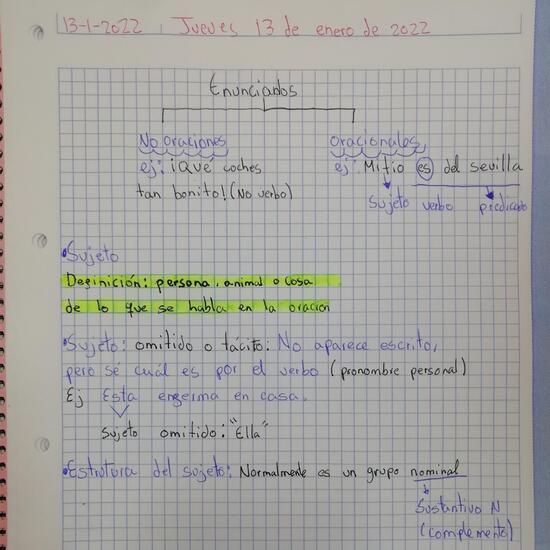 13-1-2022 Jueves 13 de enero de 2022
Enunciados
No oraciones
ej: ¡Qué coches
tan bonito! (No verbo)
oracionales
ej: Mi tio es del sevilla
Sujeto verbo predicado
• Sujeto
Definición: persona, animal o cosa
de lo que se habla en la oracion
• Sujeto: omitido o tácito: No aparece escrito,
pero sé cuál es por el verbo (pronombre personal)
Ej Esta enferma en casa.
Sujeto omitido: "Ella"
• Estrutura del sujeto: Normalmente es un grupo nominal
Sustantivo N
(complemento)